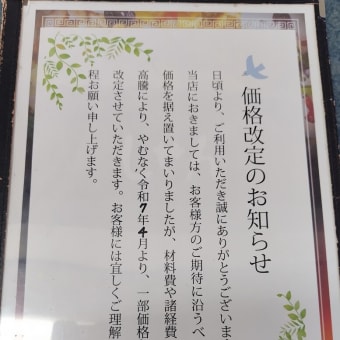 価格改定のお知らせ
日頃より、ご利用いただき誠にありがとうございま
当店におきましては、お客様方のご期待に沿うべ
価格を据え置いてまいりましたが、材料費や諸経費
高騰により、やむなく令和7年4月より、一部価格
改定させていただきます。お客様には宜しくご理解
程お願い申し上げます。